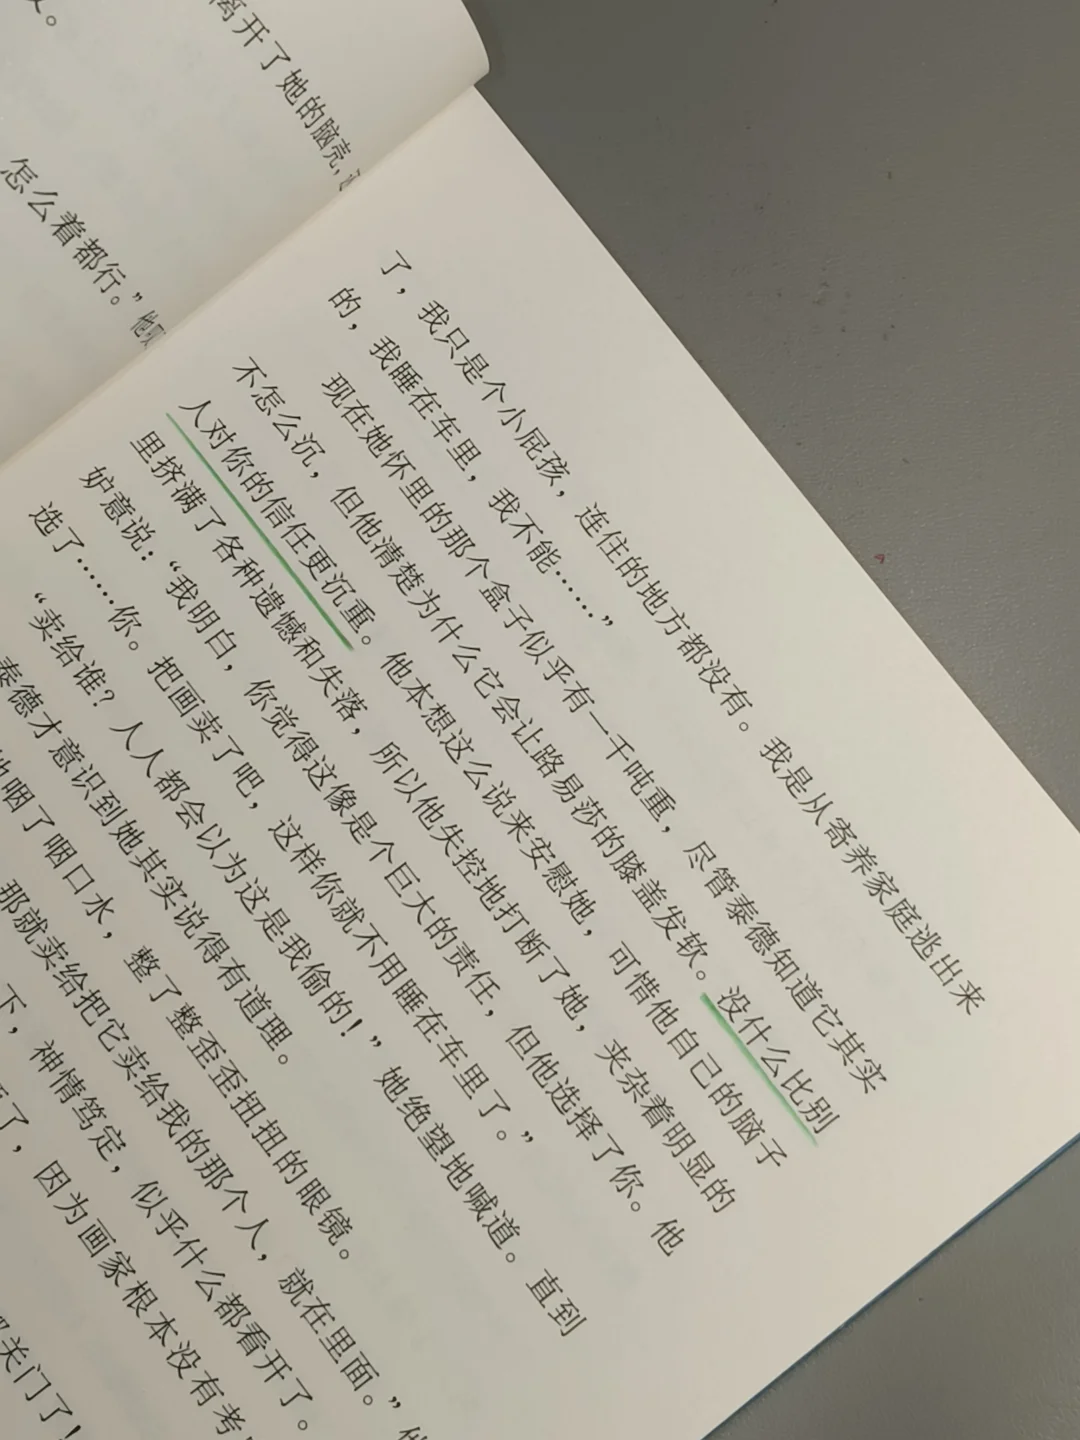 离开了她的脑壳,
怎么着都行。”
了，我只是个小屁孩，连住的地方都没有。我是从寄养家庭逃出来
的，我睡在车里，我不能……”
现在她怀里的那个盒子似乎有一千吨重，尽管泰德知道它其实
不怎么沉，但他清楚为什么它会让路易莎的膝盖发软。没什么比别
人对你的信任更沉重。他本想这么说来安慰她，可惜他自己的脑子
里挤满了各种遗憾和失落，所以他失控地打断了她，夹杂着明显的
妒意说：“我明白，你觉得这像是个巨大的责任，但他选择了你。他
选了……你。把画卖了吧，这样你就不用睡在车里了。”
“卖给谁？人人都会以为这是我偷的！”她绝望地喊道。直到
泰德才意识到她其实说得有道理。
咽了咽口水，整了整歪歪扭扭的眼镜。
那就卖给把它卖给我的那个人，就在里面。”
下，神情笃定，似乎什么都看开了。
了，因为画家根本没有考
关门了！